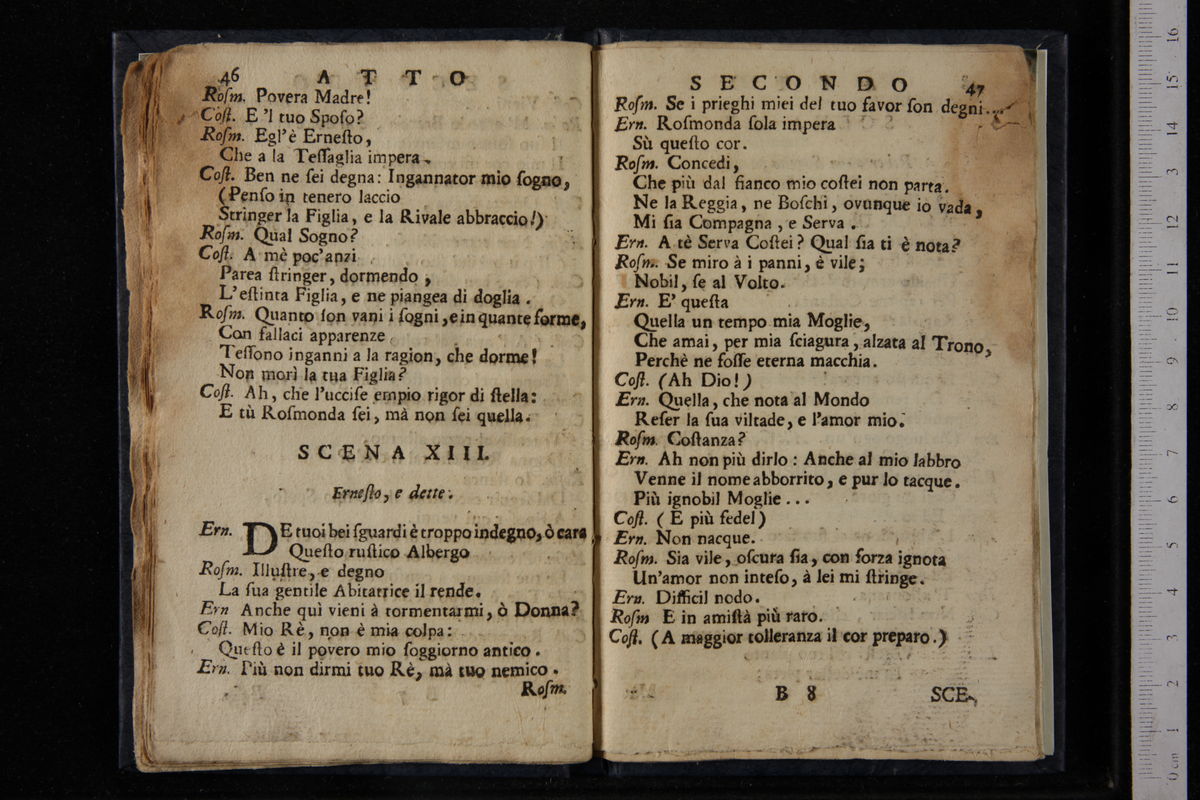 46 ATTO
Roſm. Povera Madre!
Coſt. E 'l tuo Spoſo?
Roſm. Egl'è Erneſto,
Che a la Teſſaglia impera.
Coſt. Ben ne ſei degna: Ingannator mio ſogno,
(Penſo in tenero laccio
Stringer la Figlia, e la Rivale abbraccio!)
Roſm. Qual Sogno?
Coſt. A mè poc'anzi
Parea ſtringer, dormendo,
L'eſtinta Figlia, e ne piangea di doglia.
Roſm. Quanto ſon vani i ſogni, e in quante forme,
Con fallaci apparenze
Teſſono inganni a la ragion, che dorme!
Non morì la tua Figlia?
Coſt. Ah, che l'ucciſe empio rigor di ſtella:
E tù Roſmonda ſei, mà non ſei quella.
SCENA XIII.
Erneſto, e dette.
Ern. DE tuoi bei ſguardi è troppo indegno, ò cara
Queſto ruſtico Albergo
Roſm. Illuſtre, e degno
La ſua gentile Abitatrice il rende.
Ern Anche quì vieni à tormentarmi, ò Donna?
Coſt. Mio Rè, non è mia colpa:
Queſto è il povero mio ſoggiorno antico.
Ern. Più non dirmi tuo Rè, mà tuo nemico.
Roſm.
SECONDO 47
Roſm. Se i prieghi miei del tuo favor ſon degni...
Ern. Roſmonda ſola impera
Sù queſto cor.
Roſm. Concedi,
Che più dal fianco mio coſtei non parta.
Ne la Reggia, ne Boſchi, ovunque io vada,
Mi ſia Compagna, e Serva.
Ern. A tè Serva Coſtei? Qual ſia ti è nota?
Roſm. Se miro à i panni, è vile;
Nobil, ſe al Volto.
Ern. E' queſta
Quella un tempo mia Moglie,
Che amai, per mia ſciagura, alzata al Trono,
Perchè ne foſſe eterna macchia.
Coſt. (Ah Dio!)
Ern. Quella, che nota al Mondo
Reſer la ſua viltade, e l'amor mio.
Roſm. Coſtanza?
Ern. Ah non più dirlo: Anche al mio labbro
Venne il nome abborrito, e pur lo tacque.
Più ignobil Moglie...
Coſt. (E più fedel)
Ern. Non nacque.
Roſm. Sia vile, oſcura ſia, con forza ignota
Un'amor non inteſo, à lei mi ſtringe.
Ern. Difficil nodo.
Roſm E in amiſtà più raro.
Coſt. (A maggior tolleranza il cor preparo.)
B 8 SCE-
0 cm 1 2 3 4 5 6 7 8 9 10 11 12 3 14 15 16